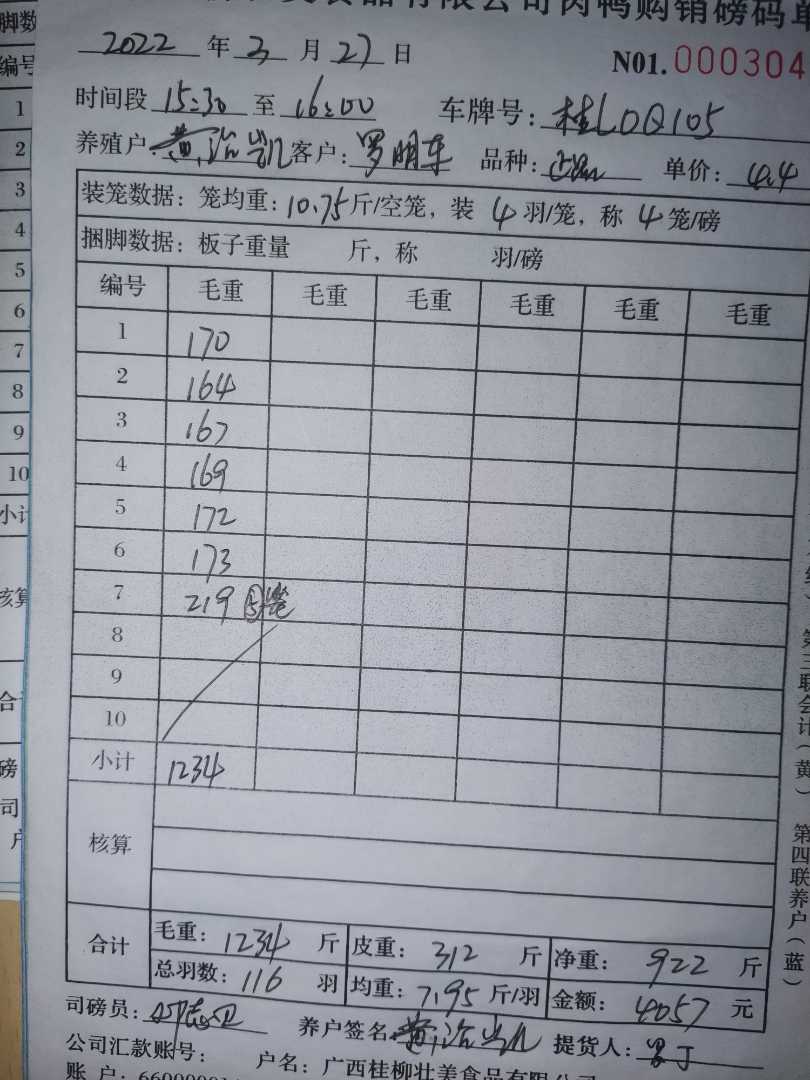 食品有限公司肉鸭购销磅码单
2022 年 3 月 27 日
N01. 000304
时间段 15:30 至 16:00 车牌号: 桂L0Q105
养殖户: 黄治凯 客户: 罗明车 品种: 单价: 4.4
装笼数据: 笼均重: 10.75 斤/空笼, 装 4 羽/笼, 称 4 笼/磅
捆脚数据: 板子重量 斤, 称 羽/磅
编号 毛重 毛重 毛重 毛重 毛重 毛重
1 170
2 164
3 167
4 169
5 172
6 173
7 219 ⑤笼
8
9
10
小计 1234
核算
合计 毛重: 1234 斤 皮重: 312 斤 净重: 922 斤
总羽数: 116 羽 均重: 7.95 斤/羽 金额: 4057 元
司磅员: 养户签名 黄治凯 提货人: 罗丁
公司汇款账号: 户名: 广西桂柳壮美食品有限公
账 户: 6600000
脚数
编号
1
2
3
4
5
6
7
8
9
10
小计
核算
合计
磅
司
户
第三联会计(黄) 第四联养户(蓝)